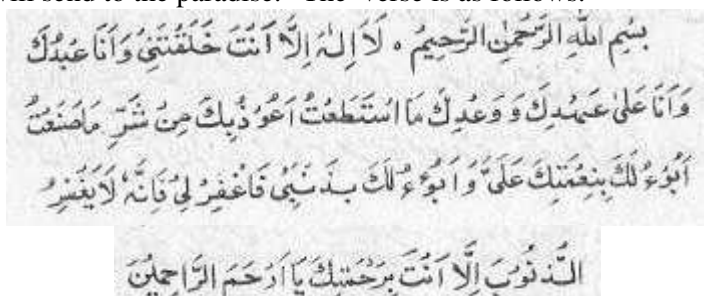 will send to the paradise." The verse is as follows.
بِسْمِ اللّٰهِ الرَّحْمٰنِ الرَّحِيْمُ ۰ لَا اِلٰهَ اِلَّا اَنْتَ خَلَقْتَنِيْ وَاَنَا عَبْدُكَ
وَاَنَا عَلٰى عَهْدِكَ وَ وَعْدِكَ مَا اسْتَطَعْتُ اَعُوْذُبِكَ مِنْ شَرِّ مَاصَنَعْتُ
اَبُوْءُ لَكَ بِنِعْمَتِكَ عَلَيَّ وَ اَبُوْءُ لَكَ بِذَنْبِيْ فَاغْفِرْ لِيْ فَاِنَّهٗ لَايَغْفِرُ
الذُّنُوْبَ اِلَّا اَنْتَ بِرَحْمَتِكَ يَا اَرْحَمَ الرَّاحِمِيْنَ